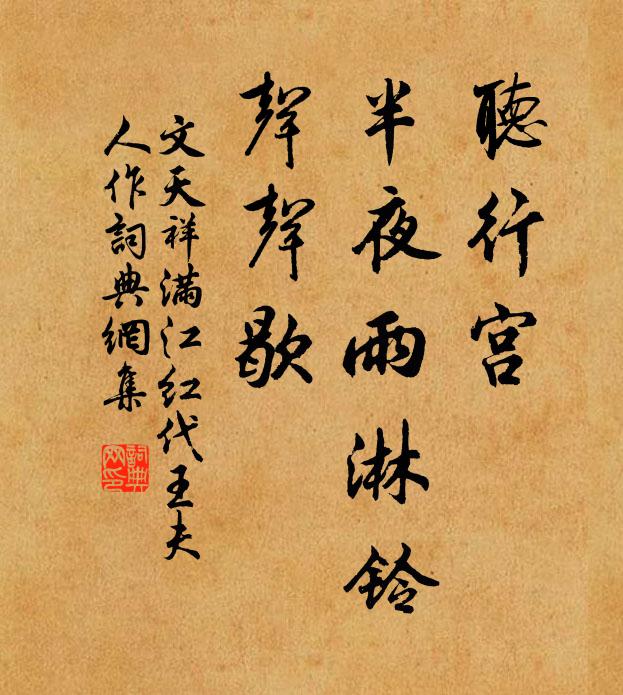 聽行宫
半夜雨淋鈴
聲聲歇
文天祥滿江红代王夫
人作詞典網集
詞典
网印